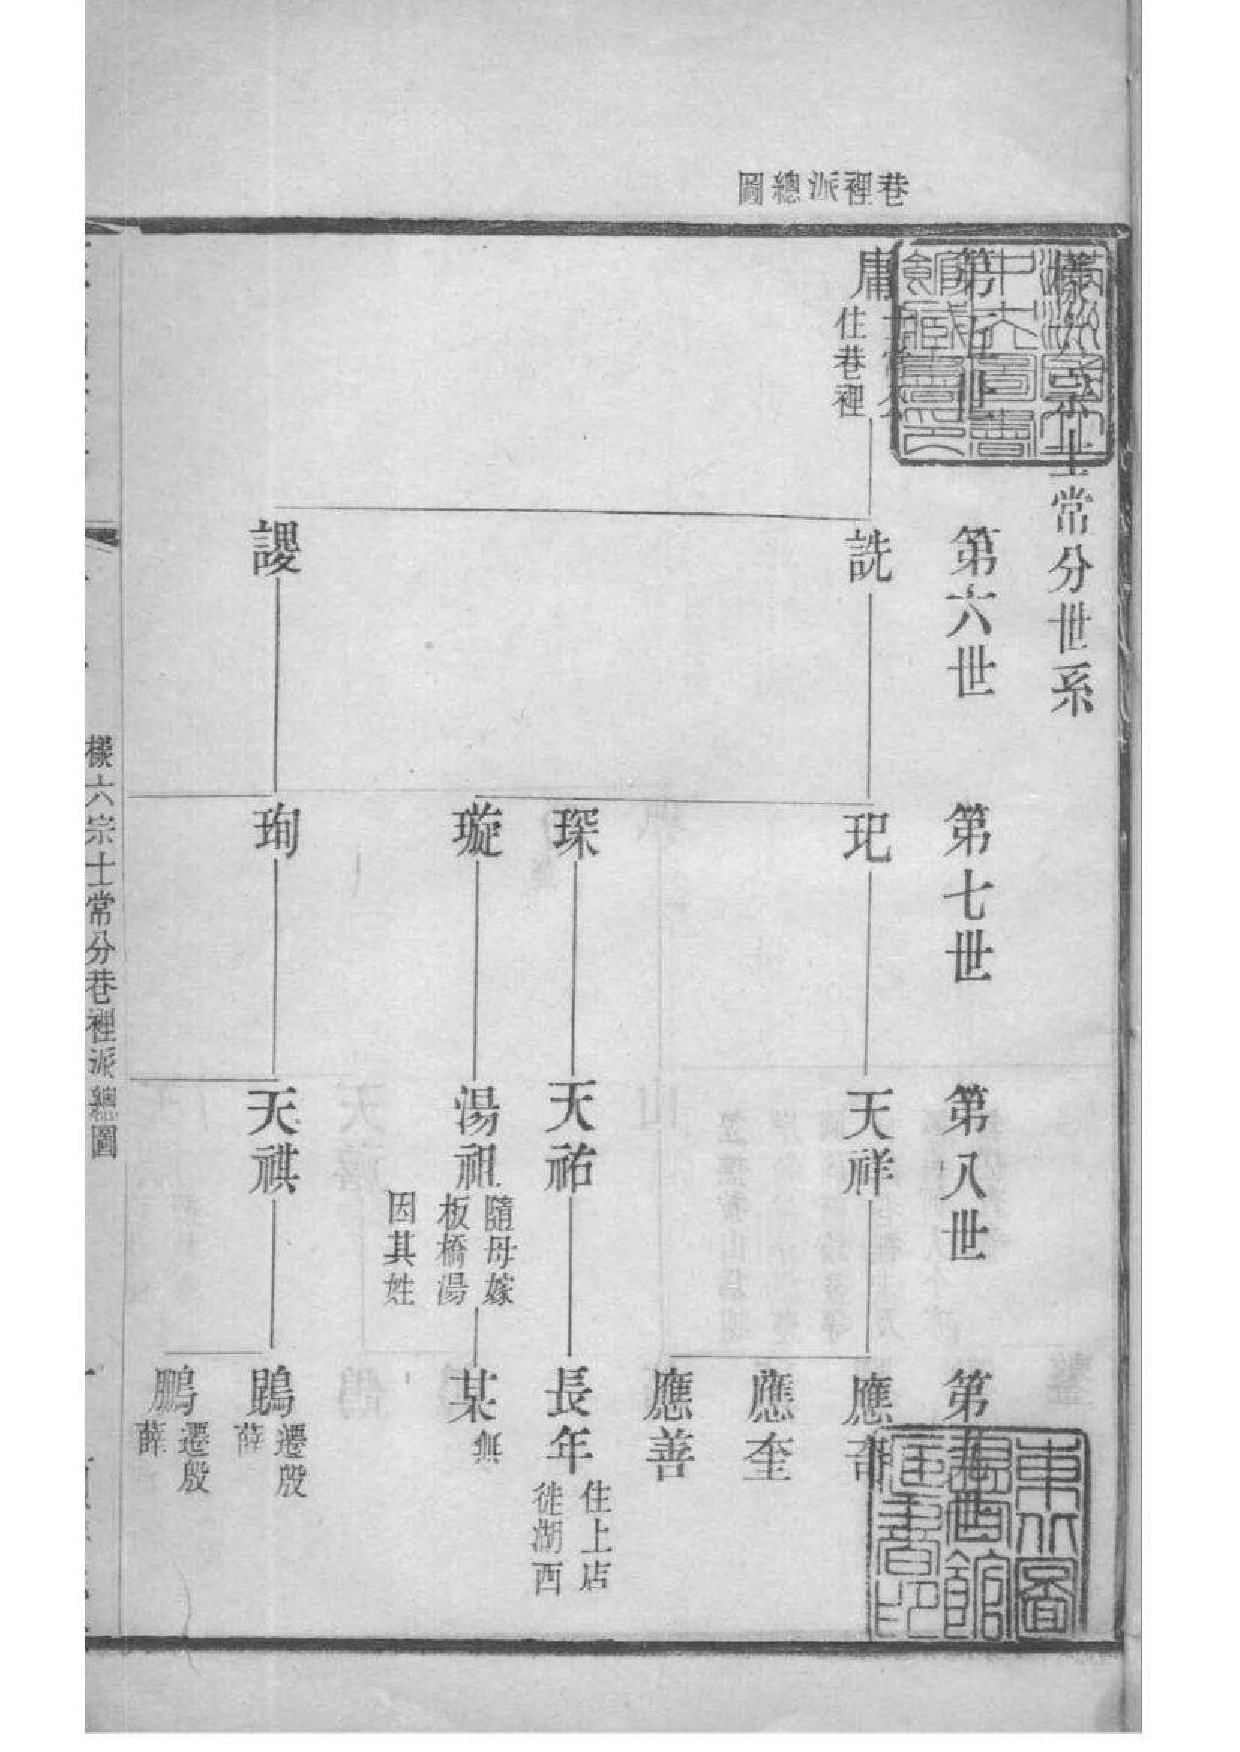 巷裡派總圖
樣六宗士常分世系
第五世
第六世
第七世
第八世
第九世
庸
士常公
住巷裡
詵
謖
玘
琛
璇
珣
天祥
天祐
湯祖
隨母嫁
板橋湯
因其姓
天祺
應奇
應奎
應善
長年
住上店
徙湖西
某
無
鵾
遷殷
薛
鵬
遷殷
薛
樣六宗士常分巷裡派總圖